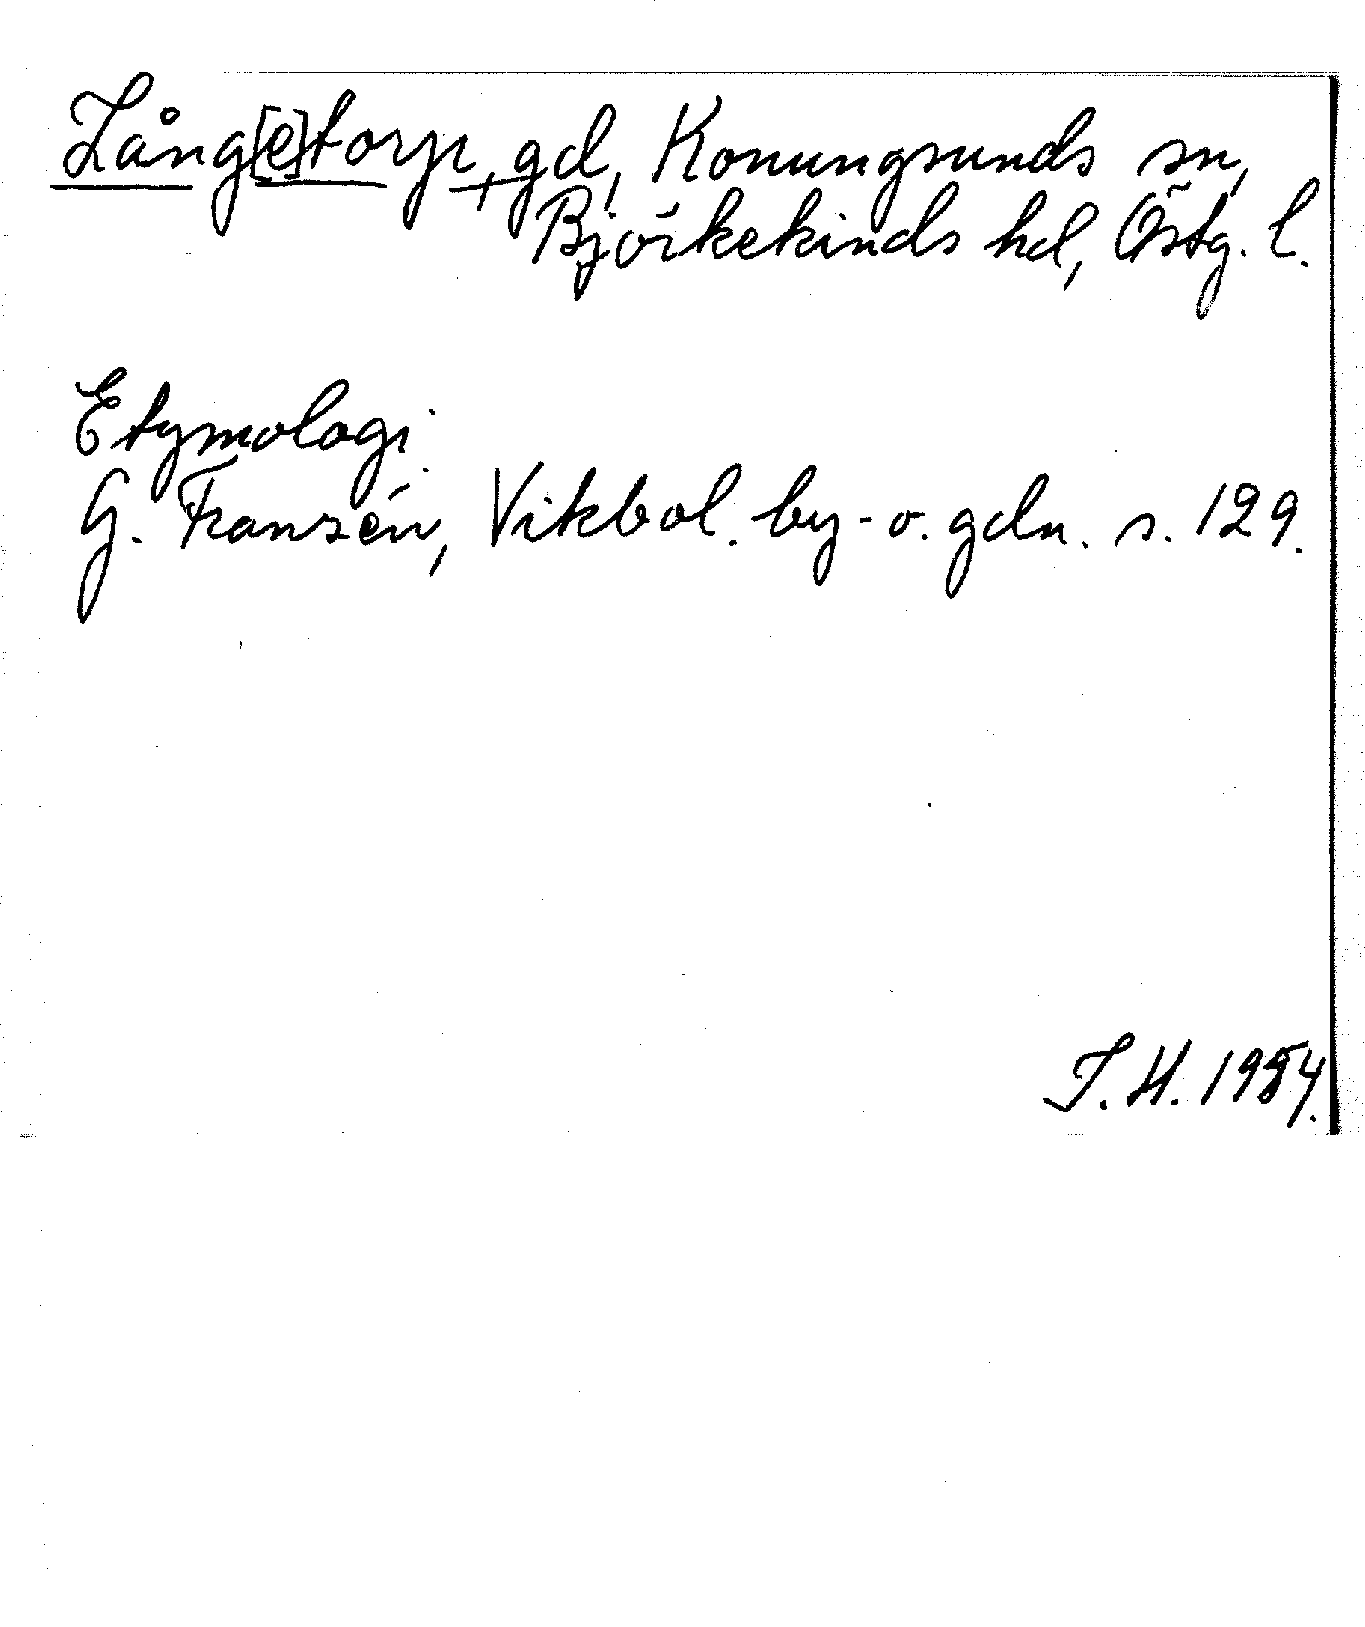 Lång[e]torp, gd, Konungsunds sn,
Björkekinds hd, Östg. l.
Etymologi
G. Franzén, Vikbol. by- o. gdn. s. 129.
I. H. 1984.